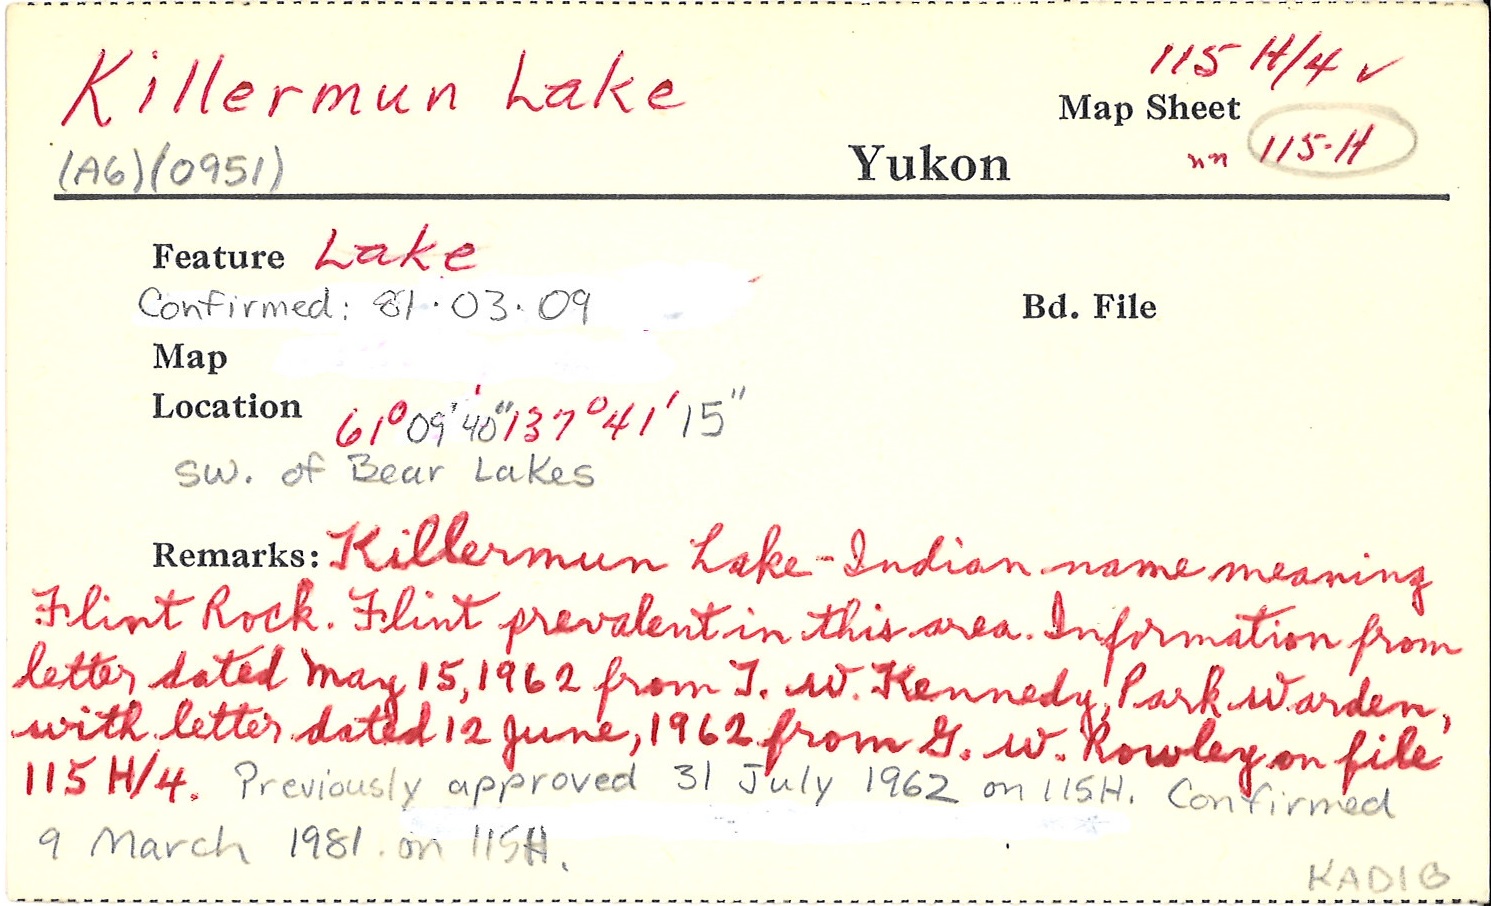 Killermun Lake
115 H/4 ✓
Map Sheet
(A6)(0951)
Yukon
"" 115-H
Feature Lake
Confirmed: 81.03.09
Bd. File
Map
Location 61° 09' 40" 137° 41' 15"
SW. of Bear Lakes
Remarks: Killermun Lake - Indian name meaning
Flint Rock. Flint prevalent in this area. Information from
letter dated May 15, 1962 from T. W. Kennedy, Park Warden,
with letter dated 12 June, 1962 from G. W. Rowley on file
115 H/4. Previously approved 31 July 1962 on 115H. Confirmed
9 March 1981 on 115H.
KADIB